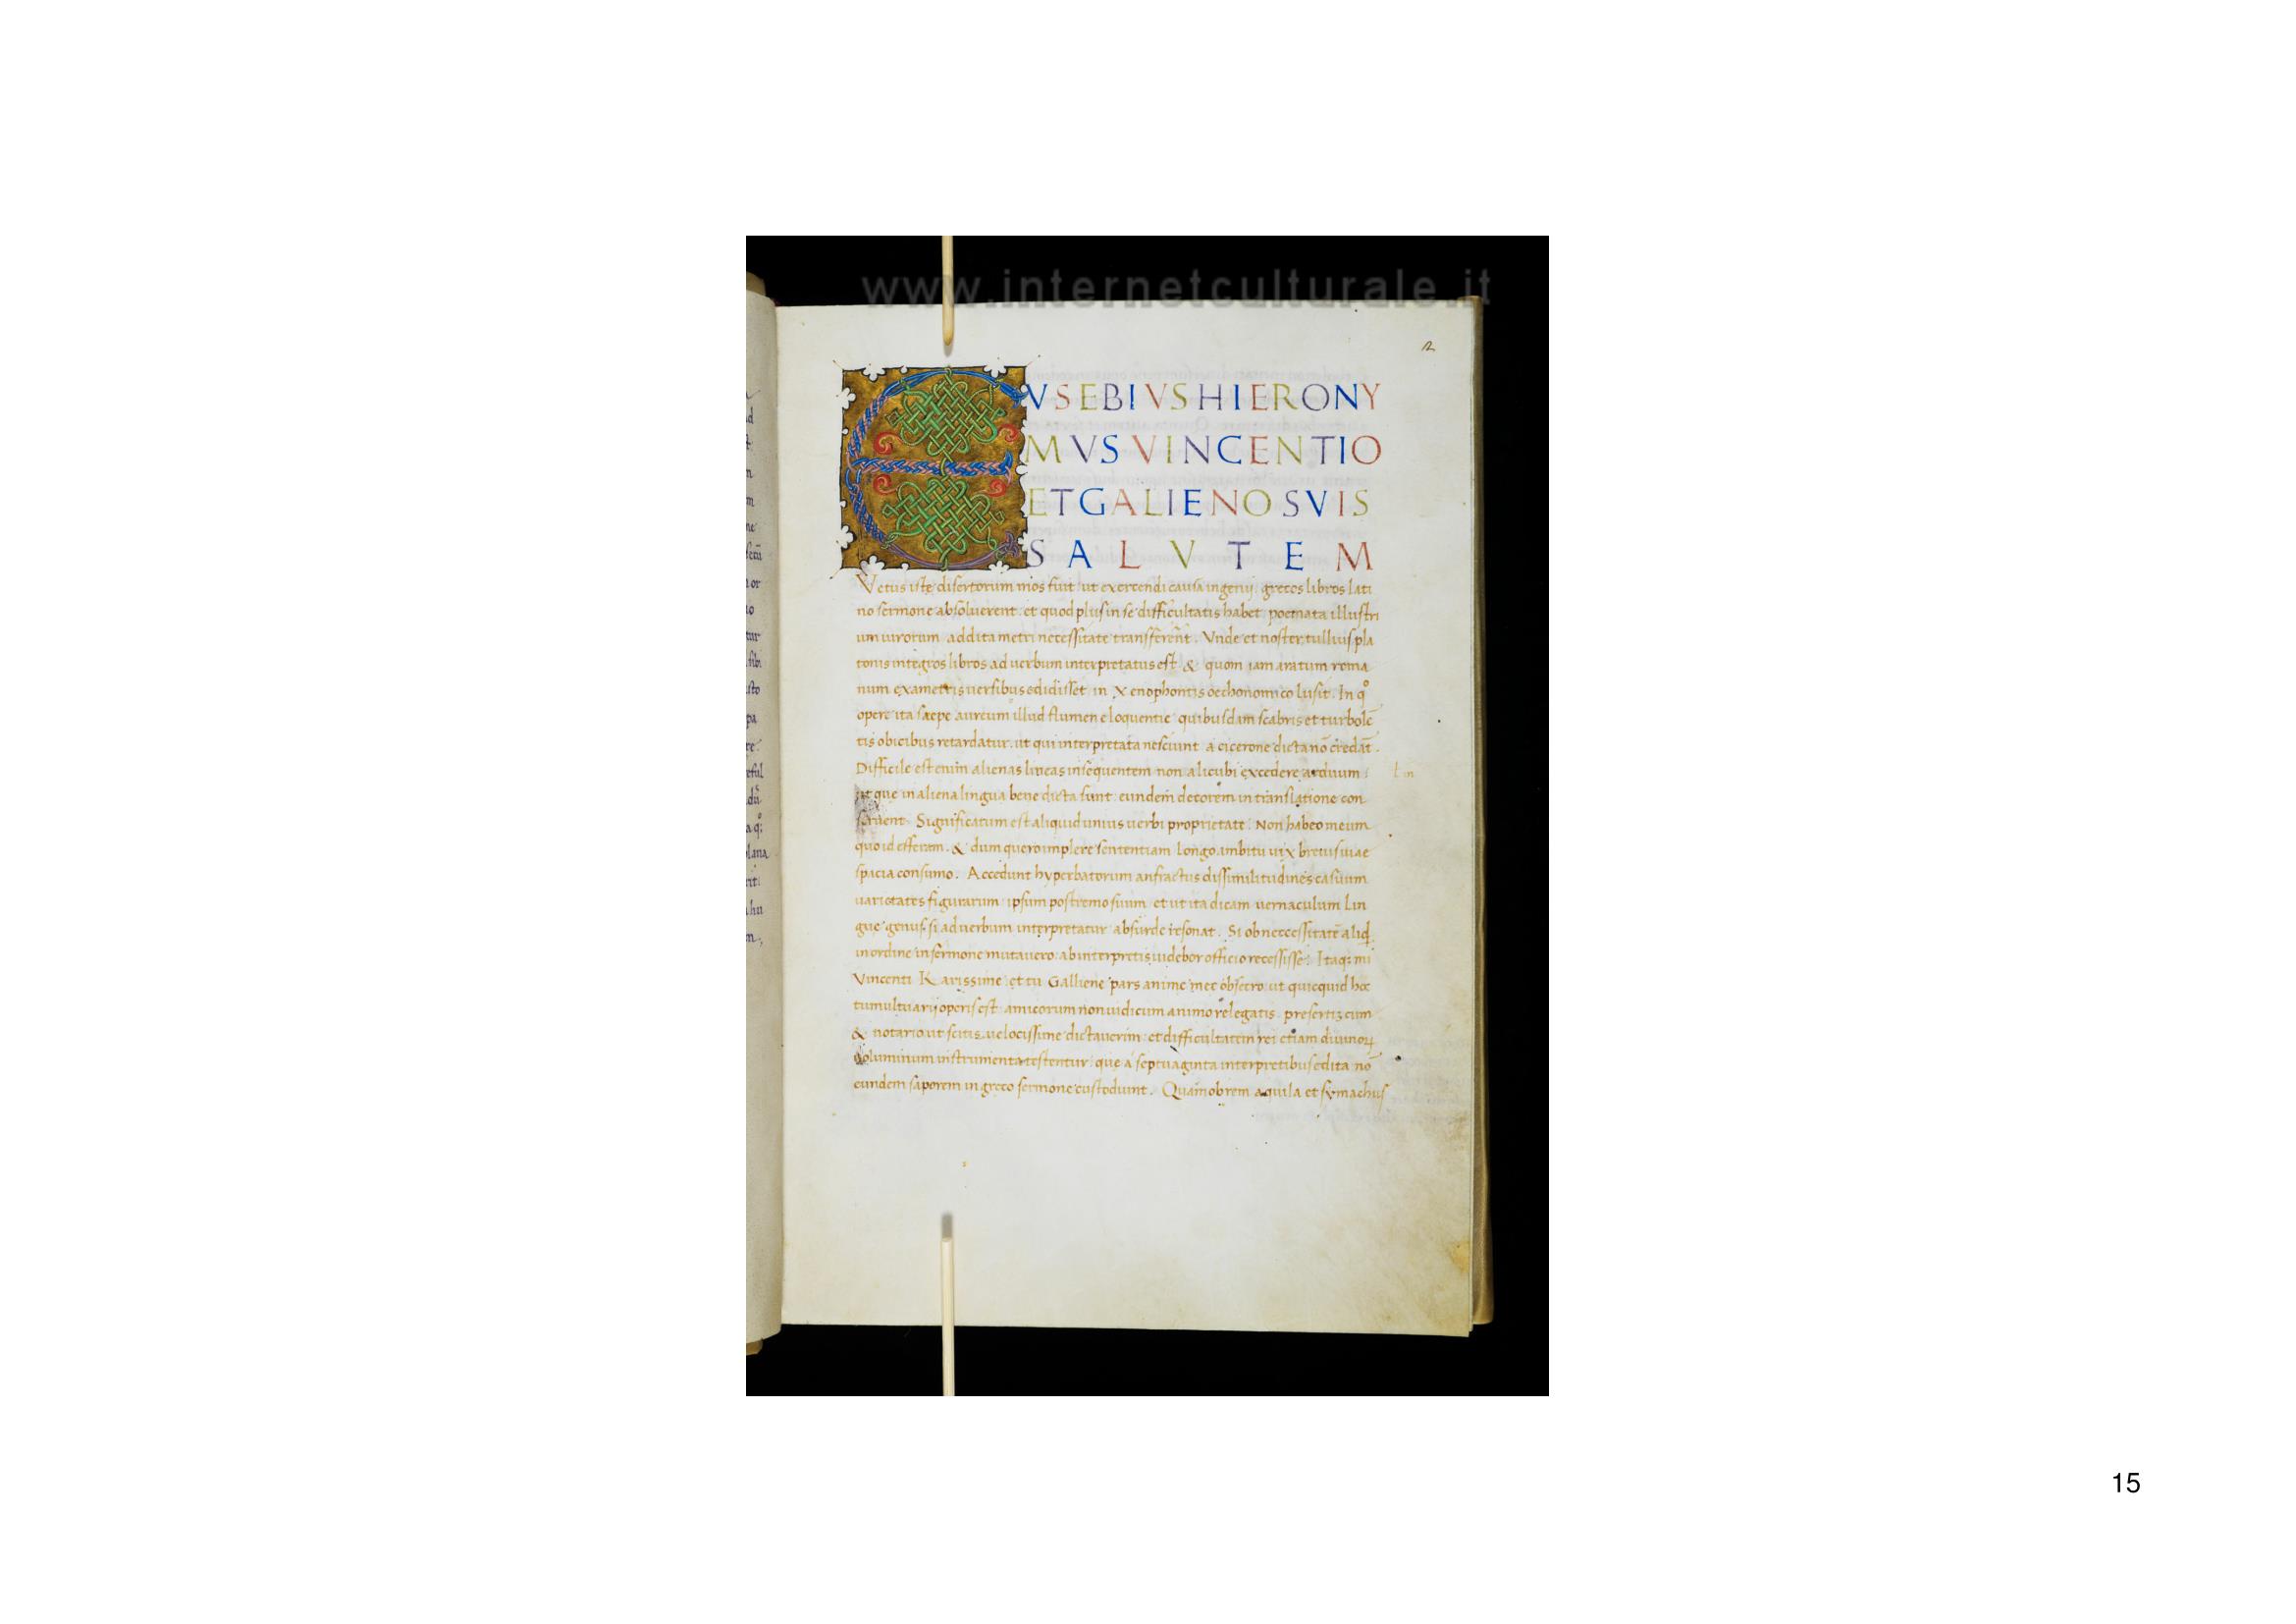 www.internetculturale.it
EVSEBIVS HIERONY
MVS VINCENTIO
ET GALIENO SVIS
SALVTEM
Vetus iste disertorum mos fuit ut exercendi causa ingenij grecos libros lati
no sermone absoluerent et quod plus in se difficultatis habet poemata illustri
um uirorum addita metri necessitate transferēnt. Vnde et noster tullius pla
tonis integros libros ad uerbum interpretatus est & quom iam aratum roma
num exametris uersibus edidisset in Xenophontis oechonomico lusit. In qͦ
opere ita saepe aureum illud flumen eloquentie quibusdam scabris et turbolē
tis obicibus retardatur ut qui interpretata nesciunt a cicerone dicta nō credāt.
Difficile est enim alienas lineas insequentem non alicubi excedere arduum
ut que in aliena lingua bene dicta sunt eundem decorem in translatione con
seruent. Significatum est aliquid unius uerbi proprietate. Non habeo meum
quo id efferam. & dum quero implere sententiam longo ambitu uix breuis uiae
spacia consumo. Accedunt hyperbatorum anfractus dissimilitudines casuum
uarietates figurarum ipsum postremo suum et ut ita dicam uernaculum lin
gue genus. si ad uerbum interpretatur absurde resonat. Si ob neccessitatē aliq
in ordine in sermone mutauero: ab interpretis uidebor officio recessisse. Itaq; mi
Vincenti Karissime et tu Galliene pars anime mee obsecro ut quicquid hoc
tumultuarij operis est amicorum non iudicum animo relegatis presertiz cum
& notario ut scitis uelocissime dictauerim: et difficultatem rei etiam diuinoꝝ
uoluminum instrumenta testentur que a septuaginta interpretibus edita nō
eundem saporem in greco sermone custodiunt. Quamobrem aquila et symachus
15